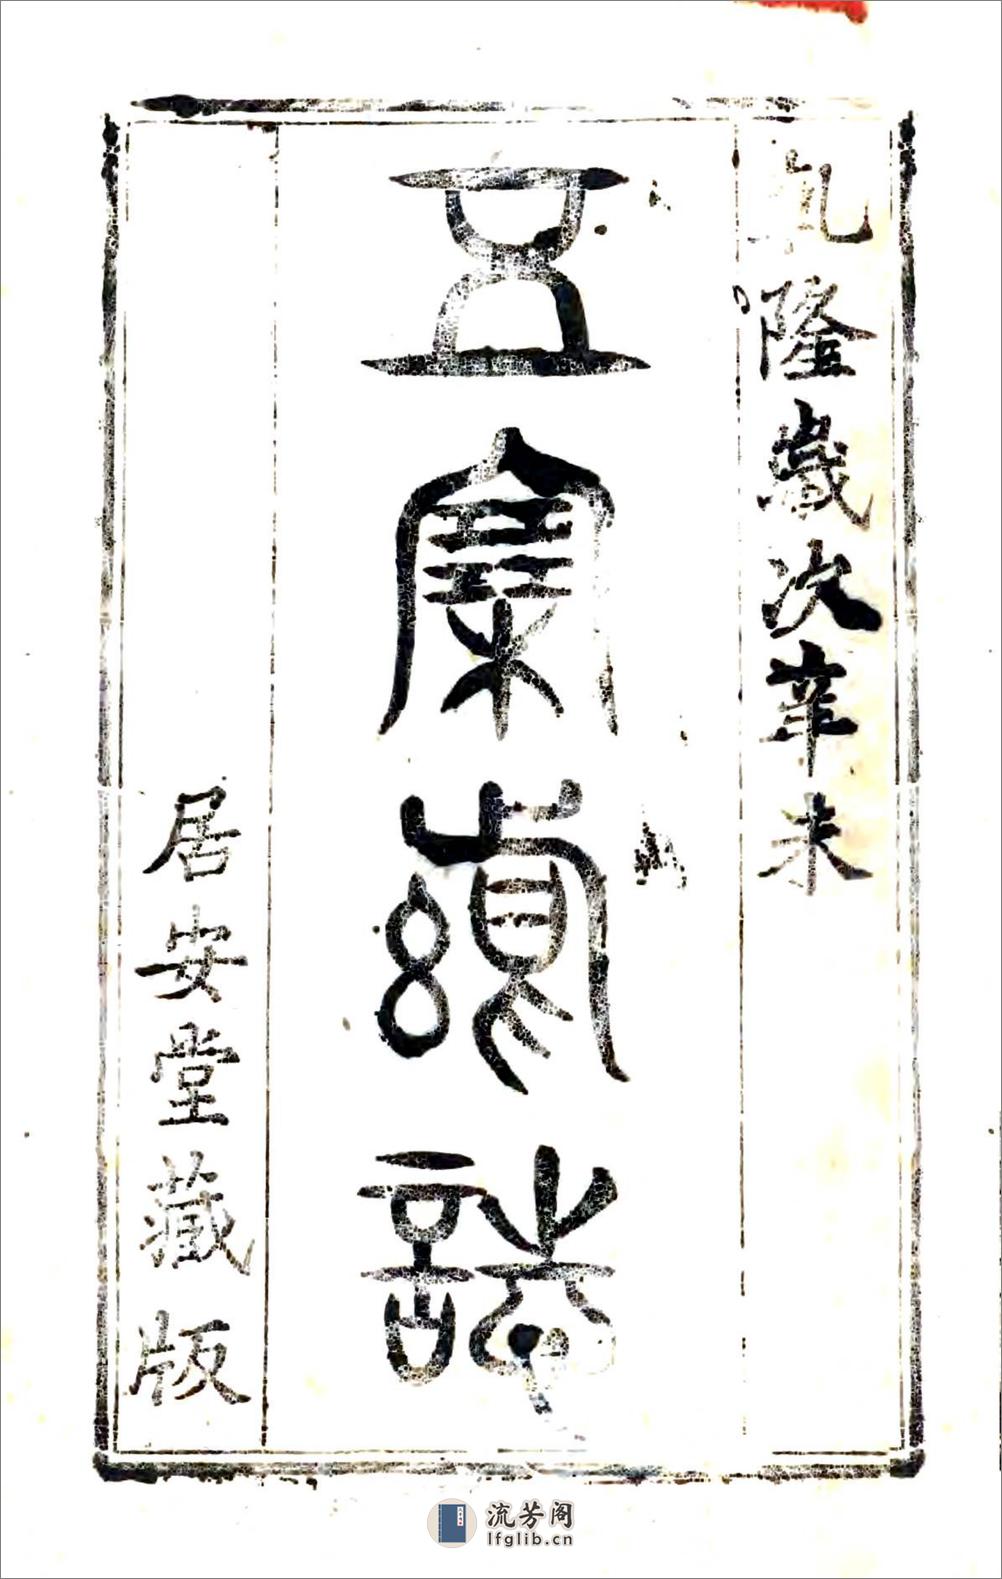 乾隆歲次辛未
五寨縣誌
居安堂藏版
流芳阁
lfglib.cn